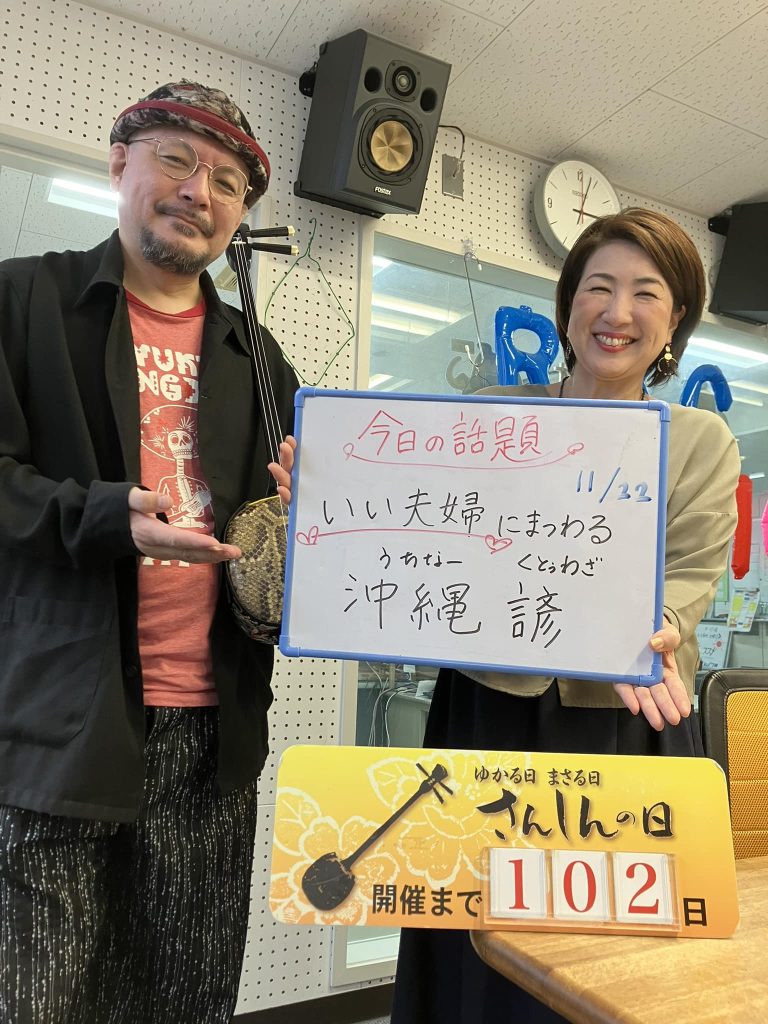 今日の話題
11/22
いい夫婦にまつわる
うちなー くとぅわざ
沖縄 諺
ゆかる日 まさる日
さんしんの日
開催まで102日
FOSTEX
SEIKO
R